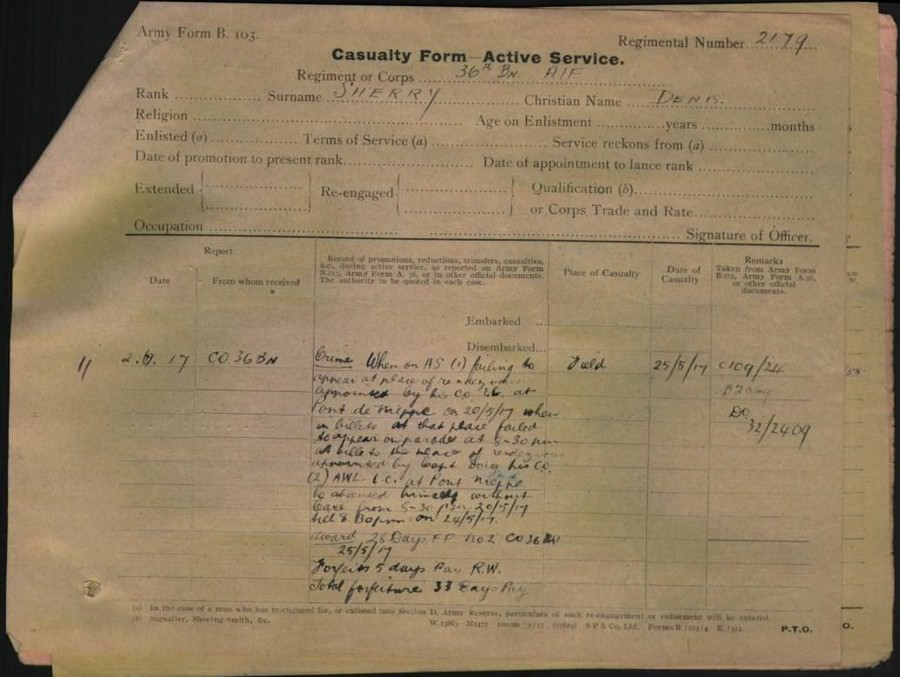 Army Form B. 103.
Regimental Number 2179
Casualty Form—Active Service.
Regiment or Corps 36th Bn. AIF
Rank Surname SHERRY Christian Name DENIS.
Religion Age on Enlistment years months
Enlisted (a) Terms of Service (a) Service reckons from (a)
Date of promotion to present rank Date of appointment to lance rank
Extended Re-engaged Qualification (b)
or Corps Trade and Rate
Occupation Signature of Officer.
Report
Date From whom received
Record of promotions, reductions, transfers, casualties,
&c., during active service, as reported on Army Form
B.213, Army Form A. 36, or in other official documents.
The authority to be quoted in each case.
Place of Casualty
Date of
Casualty
Remarks
Taken from Army Form
B.213, Army Form A.36,
or other official
documents.
Embarked
Disembarked
17 CO 36 BN Crime When on AS (1) failing to Field 25/5/17 C109/24
appear at place of rendezvous
appointed by his CO i.e. at
Pont de Nieppe on 20/5/17 when Do
in billets at that place failed 32/2409
to appear on parade at 8-30 pm
at billets the place of rendezvous
appointed by Capt his CO.
(2) AWL i.e. at Pont Nieppe
absented himself without
leave from 8-30 pm 20/5/17
till 8 30 pm on 24/5/17.
Award 28 Days FP No 2 CO 36 BN
25/5/17
Forfeits 5 days Pay R.W.
Total forfeiture 33 Days Pay
(a) In the case of a man who has re-engaged for, or enlisted into Section D, Army Reserve, particulars of such re-engagement or enlistment will be entered.
(b) Signaller, Shoeing-smith, &c.
P.T.O.